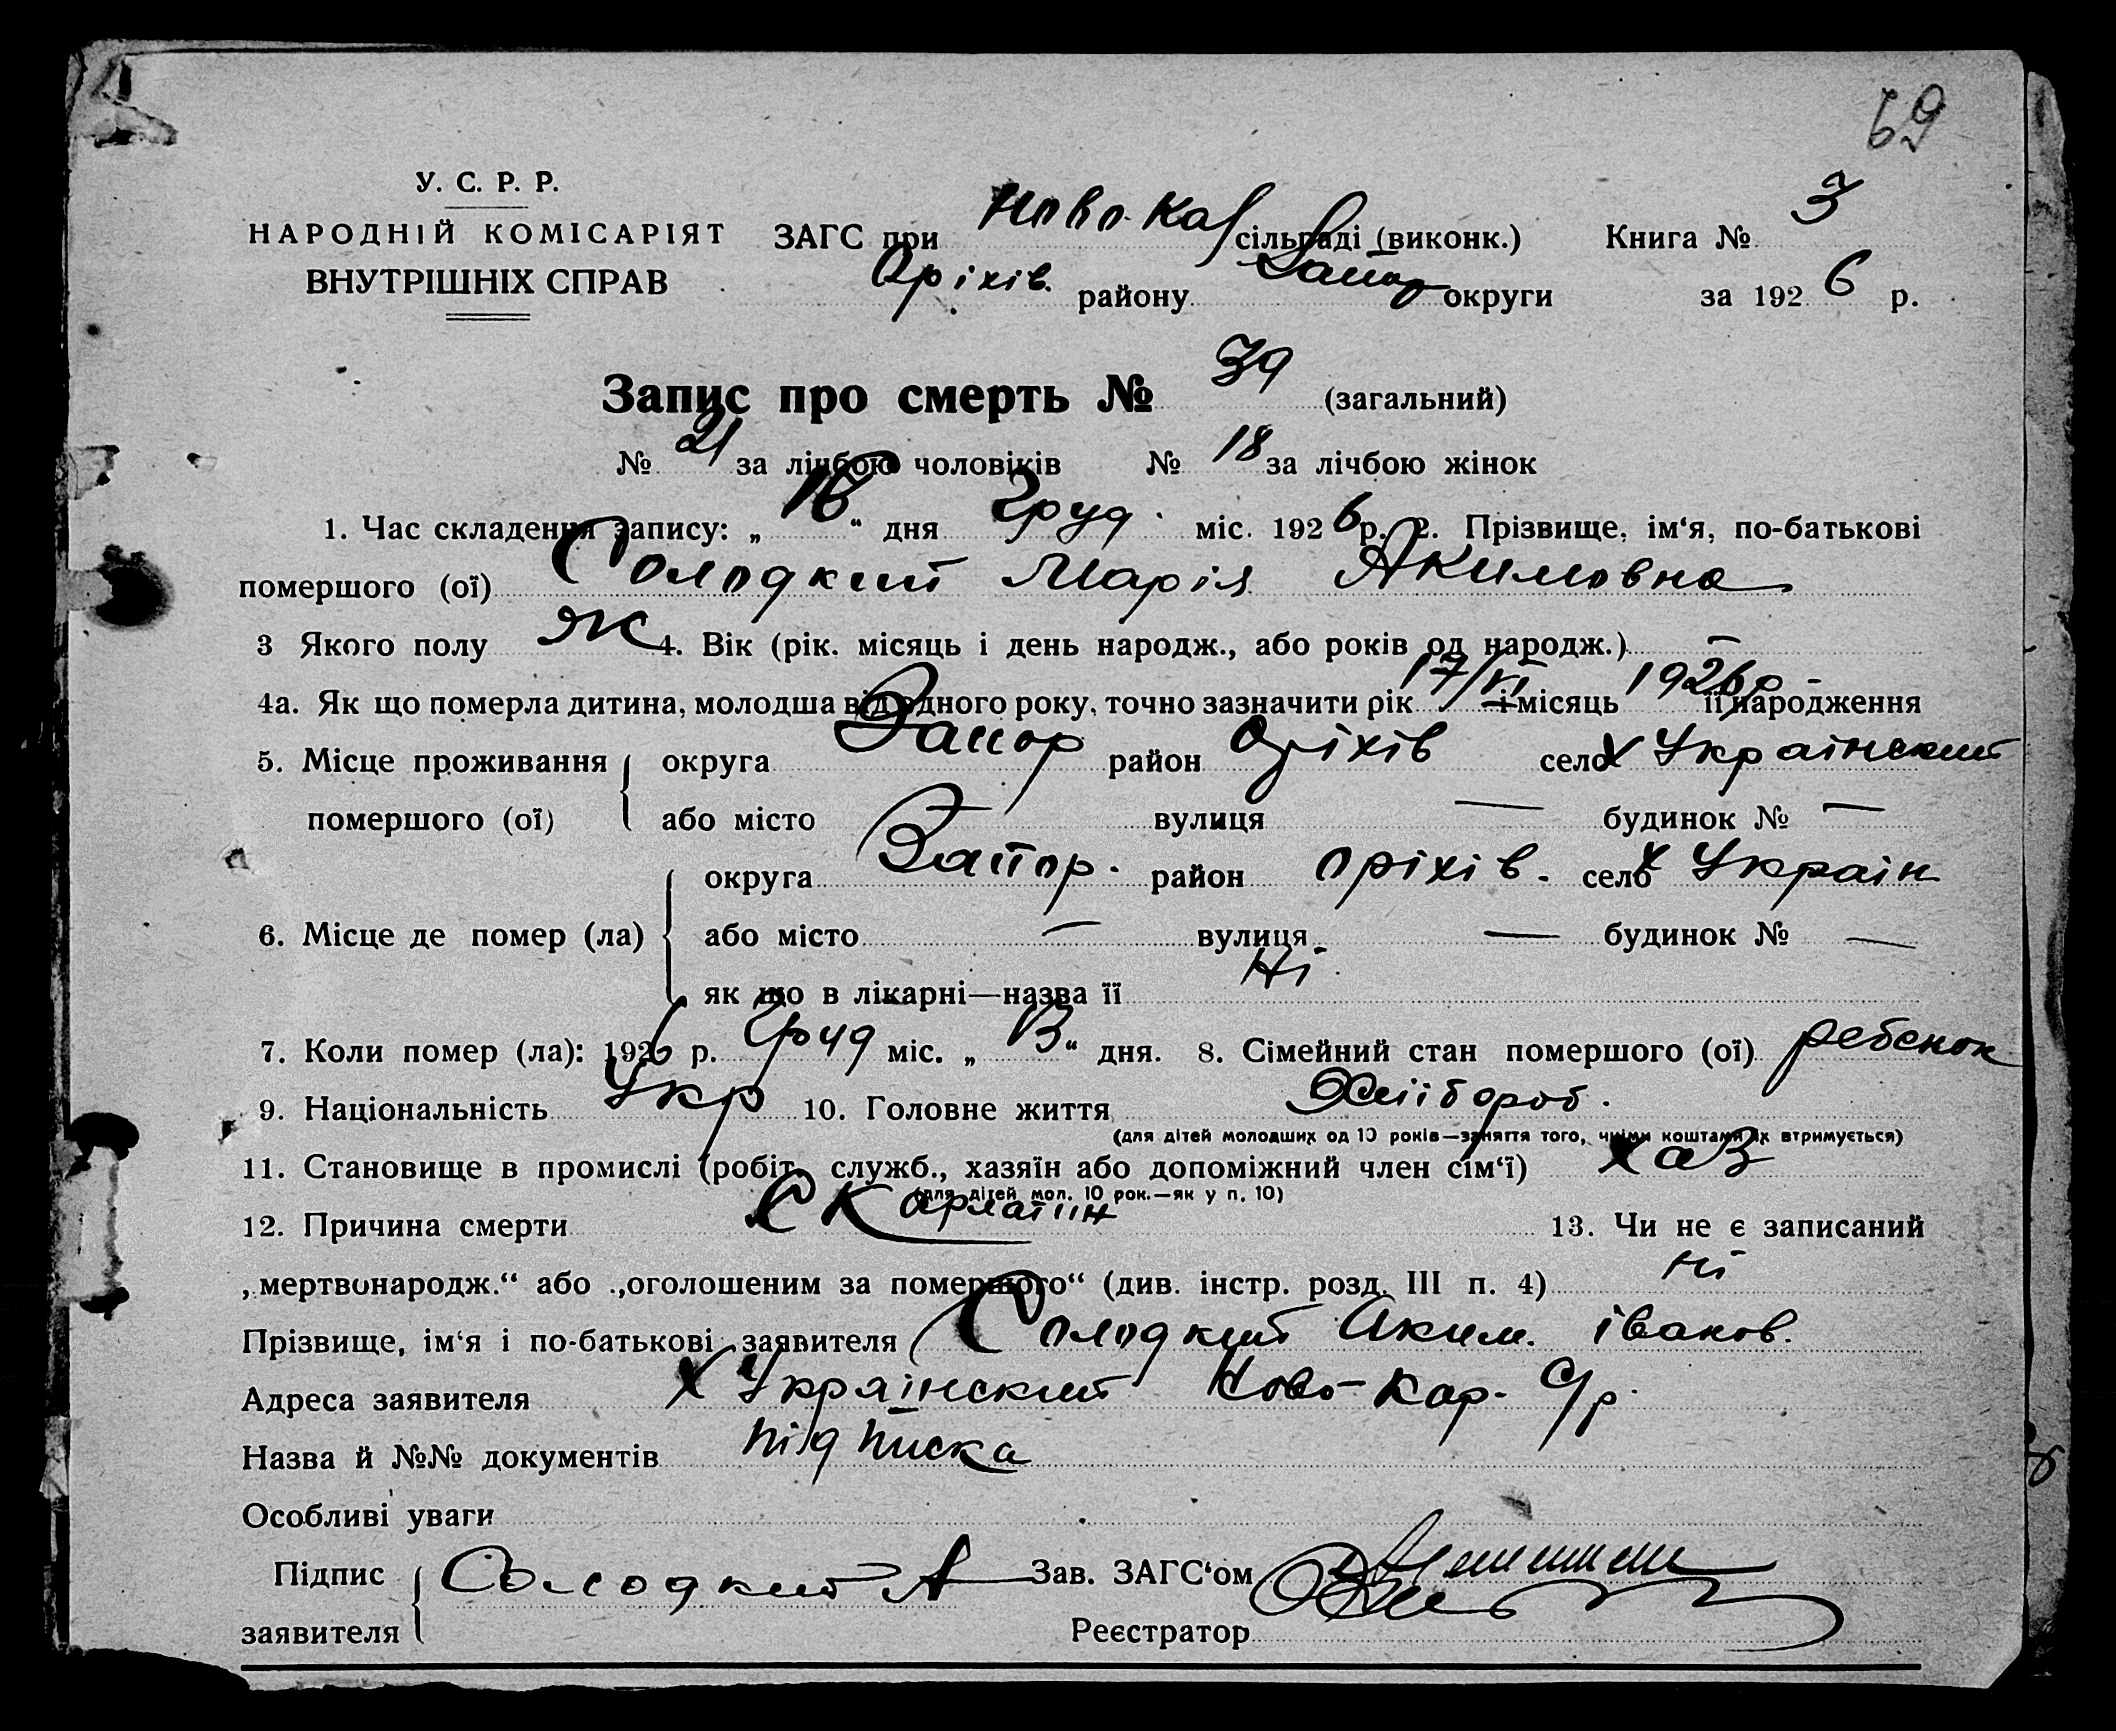 69
У. С. Р. Р.
НАРОДНІЙ КОМІСАРІЯТ
ВНУТРІШНІХ СПРАВ
ЗАГС при Ново-Кар сільраді (виконк.) Книга № 3
Оріхів. району Запор округи за 1926 р.
Запис про смерть № 39 (загальний)
№ 21 за лічбою чоловіків № 18 за лічбою жінок
1. Час складення запису: „16“ дня Груд. міс. 1926 р. 2. Прізвище, ім‘я, по-батькові
помершого (ої) Солодкий Марія Акимовна
3 Якого полу ж 4. Вік (рік. місяць і день народж., або років од народж.) —
4а. Як що померла дитина, молодша від одного року, точно зазначити рік 17/VI і місяць 1926 р її народження
5. Місце проживання округа Запор район Оріхів село Х Украінский
помершого (ої) або місто — вулиця — будинок № —
округа Запор. район Оріхів. село х Украін
6. Місце де помер (ла) або місто — вулиця — будинок № —
як що в лікарні—назва її Ні
7. Коли помер (ла): 1926 р. Груд міс. „13“ дня. 8. Сімейний стан помершого (ої) ребенок
9. Національність Укр 10. Головне життя Хлібороб.
(для дітей молодших од 10 років—заняття того, чиїми коштами їх втримується)
11. Становище в промислі (робіт., служб., хазяїн або допоміжний член сім‘ї) хаз
(для дітей мол. 10 рок.—як у п. 10)
12. Причина смерти Скарлатін 13. Чи не є записаний
„мертвонародж.“ або „оголошеним за помершого“ (див. інстр. розд. III п. 4) Ні
Прізвище, ім‘я і по-батькові заявителя Солодкий Аким. Іванов.
Адреса заявителя Х Украінский Ново-Кар. С/р.
Назва й №№ документів підписка
Особливі уваги
Підпис Солодкий А Зав. ЗАГС‘ом
заявителя Реєстратор